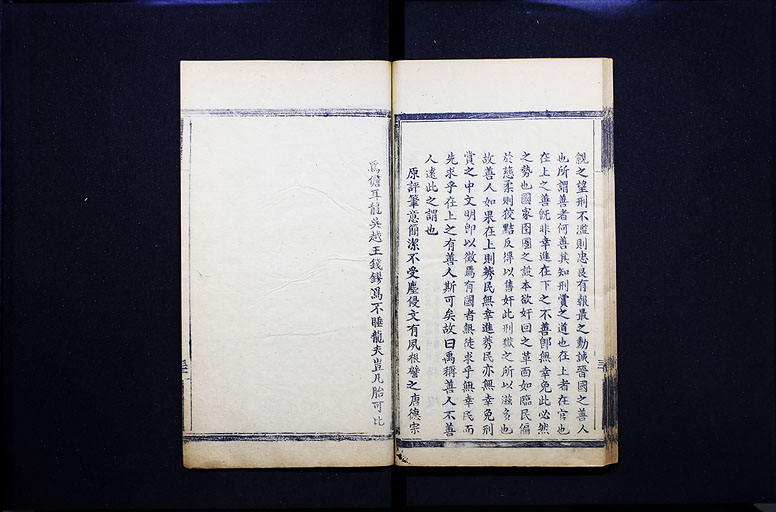 覬之望刑不濫則忠良有報最之勳誠晉國之善人
也所謂善者何善其知刑賞之道也在上者在官也
在上之善旣非幸進在下之不善卽無幸免此必然
之勢也國家囹圄之設本欲奸回之革面如臨民偏
於慈柔則狡黠反得以售奸此刑獄之所以滋多也
故善人如果在上則莠民無幸進莠民亦無幸免刑
賞之中文明卽以徵焉有國者無徒求乎無幸民而
先求乎在上之有善人斯可矣故曰禹稱善人不善
人遠此之謂也
原評筆意簡潔不受塵侵文有夙根譬之唐德宗
爲儋耳龍吳越王錢鏐爲不睡龍夫豈凡胎可比